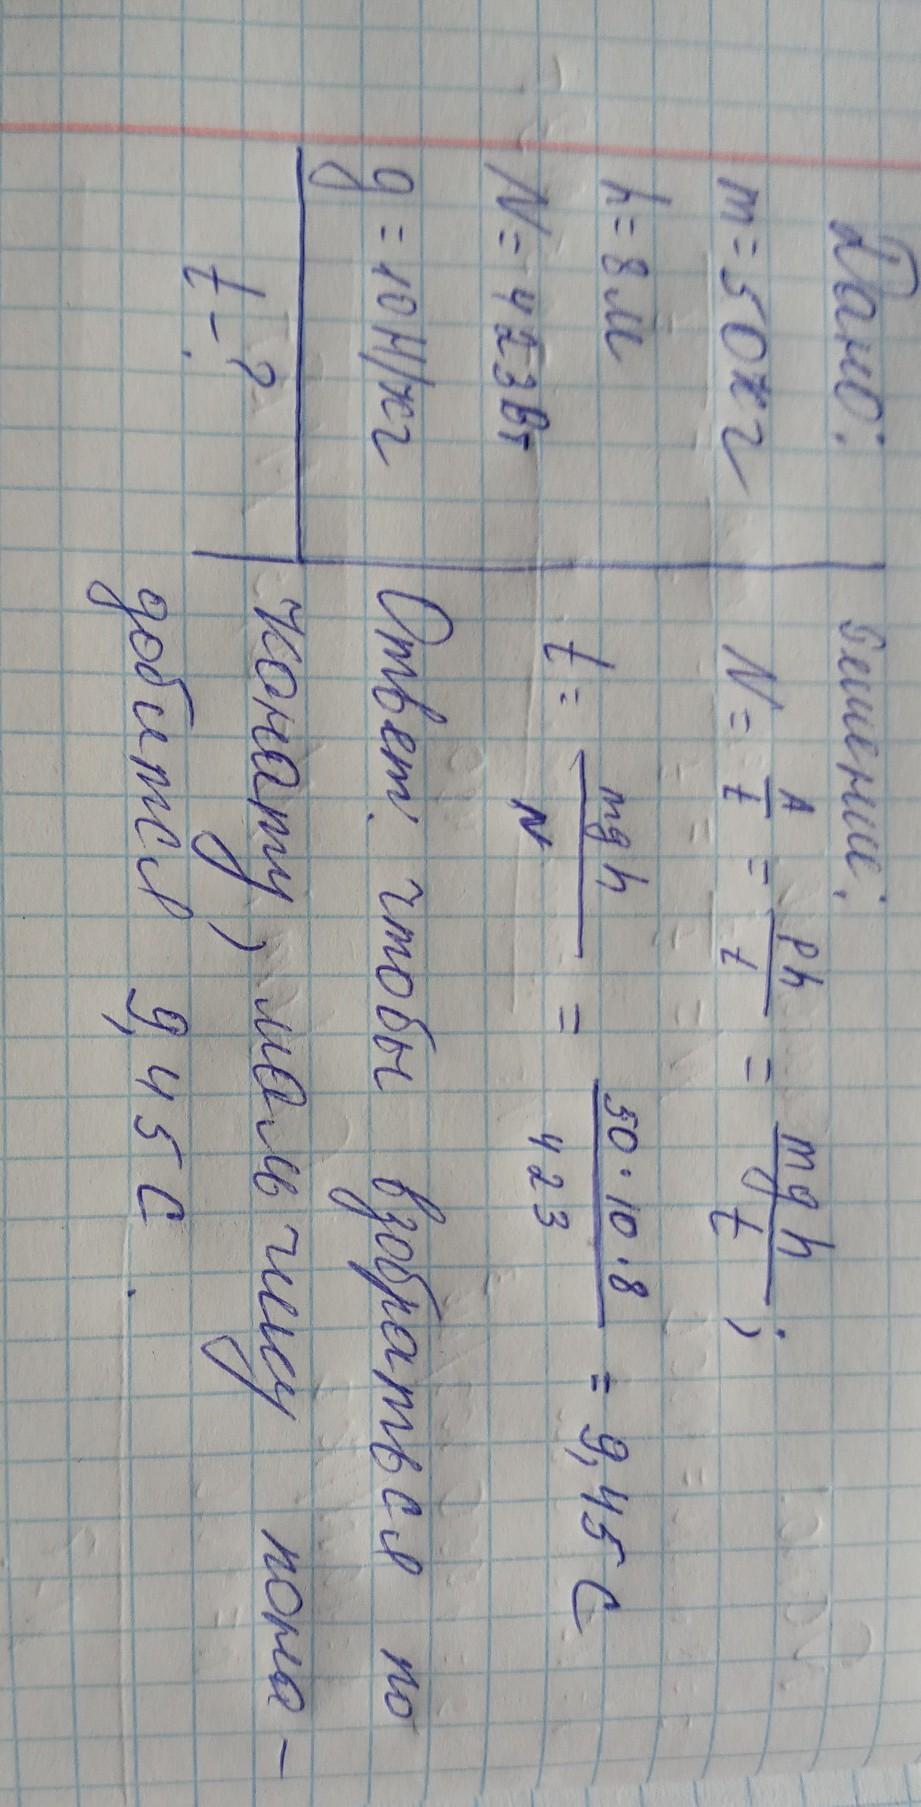 Дано:
m = 50 кг
h = 8 м
N = 423 Вт
g = 10 Н/кг
t - ?
Решение:
N = A/t = ph/t = mgh/t ;
t = mgh/N = 50·10·8/423 = 9,45 с
Ответ: чтобы взобраться по
канату, мальчику пона-
добится 9,45 с.